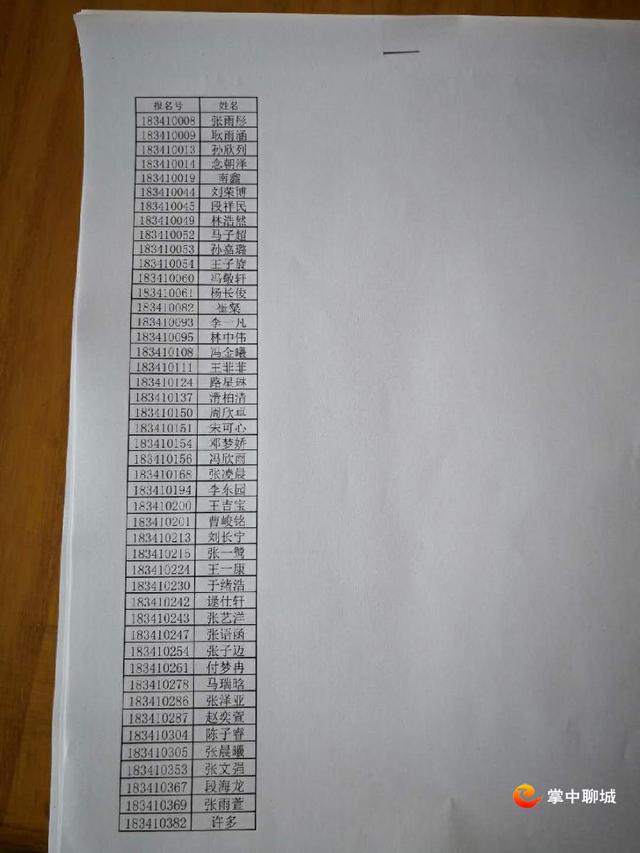 报名号 姓名
183410008 张雨彤
183410009 耿雨涵
183410013 孙欣列
183410014 念朝泽
183410019 南鑫
183410044 刘荣博
183410045 段祥民
183410049 林浩然
183410052 马子超
183410053 孙嘉璐
183410054 王子旋
183410060 冯敬轩
183410061 杨长俊
183410082 崔粲
183410093 李一凡
183410095 林中伟
183410108 冯金曦
183410111 王菲菲
183410124 路星琳
183410137 渭柏清
183410150 周欣卓
183410151 宋可心
183410154 邓梦娇
183410156 冯欣雨
183410168 张凌晨
183410194 李东园
183410200 王吉宝
183410201 曹峻铭
183410213 刘长宁
183410215 张一鹭
183410224 王一康
183410230 于绪浩
183410242 逯仕轩
183410243 张艺洋
183410247 张语函
183410254 张子迈
183410261 付梦冉
183410278 马瑞晗
183410286 张泽亚
183410287 赵奕萱
183410304 陈子睿
183410305 张晨曦
183410353 张文强
183410367 段海龙
183410369 张雨萱
183410382 许多
掌中聊城